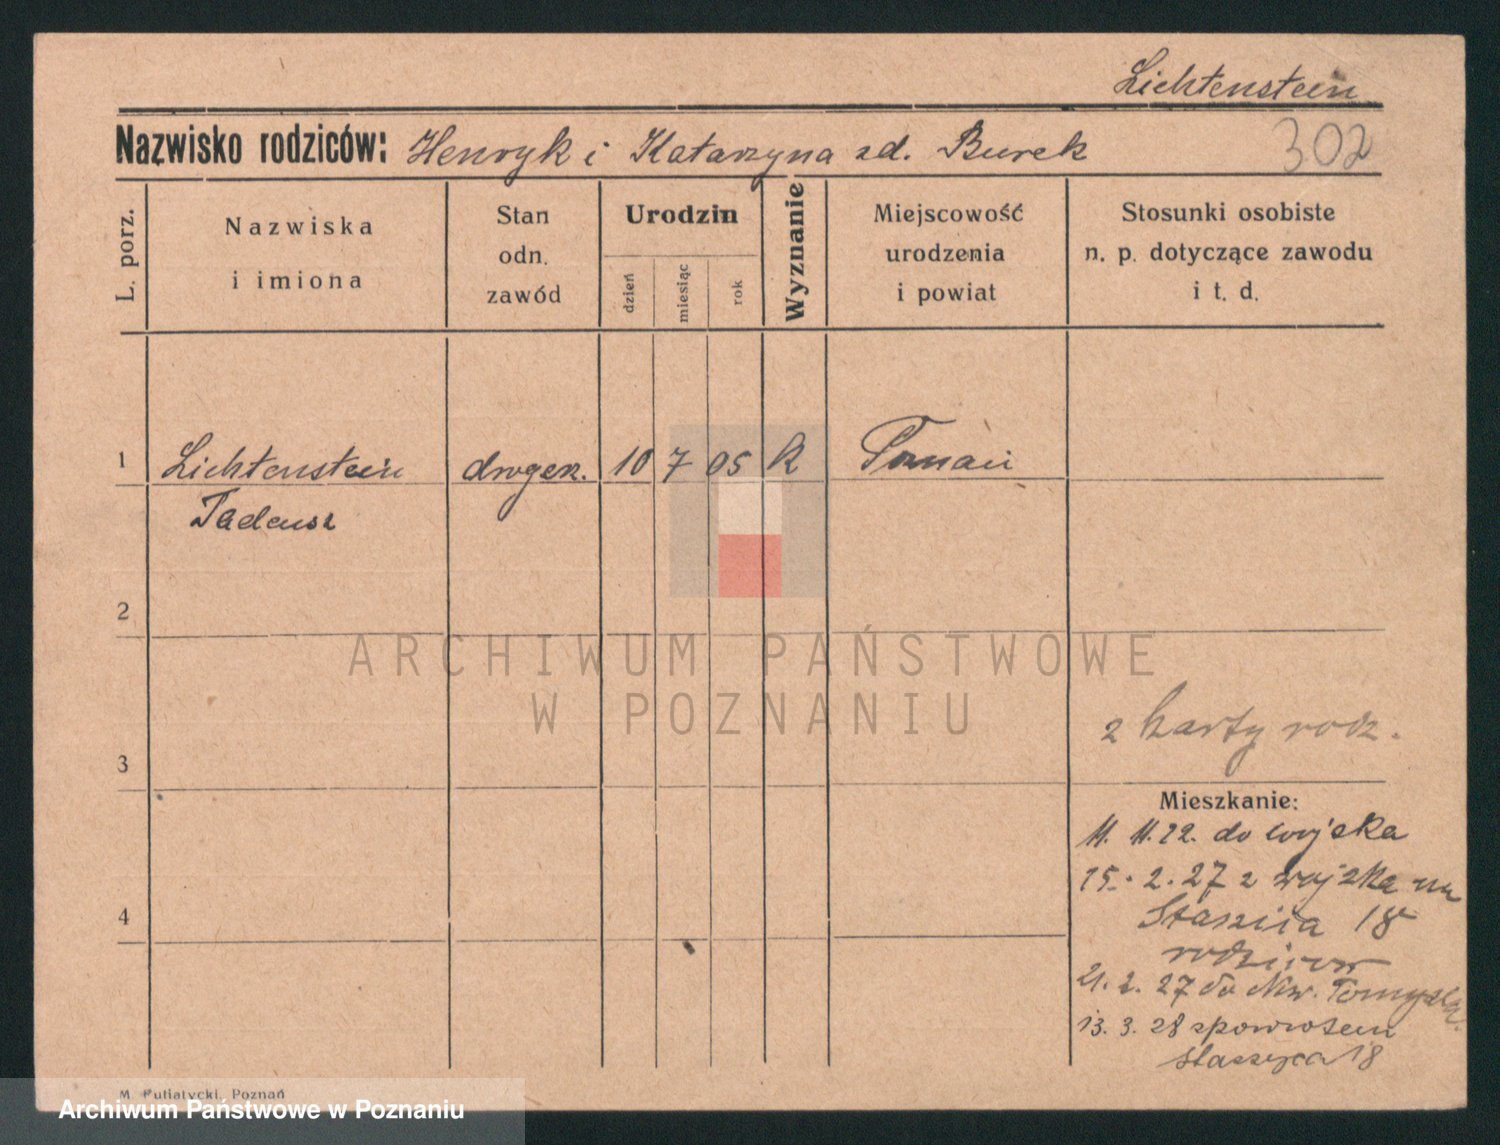 Lichtenstein
Nazwisko rodziców: Henryk i Katarzyna zd. Burek
302
L. porz.
Nazwiska
i imiona
Stan
odn.
zawód
Urodzin
dzień
miesiąc
rok
Wyznanie
Miejscowość
urodzenia
i powiat
Stosunki osobiste
n. p. dotyczące zawodu
i t. d.
1 Lichtenstein drogerz. 10 7 05 k Poznań
Tadeusz
2
ARCHIWUM PAŃSTWOWE
W POZNANIU
2 karty rodz.
3
Mieszkanie:
11. 11. 22. do wojska
15. 2. 27 z wojska na
Staszica 18
rodziców
4
21. 2. 27 do Now. Tomyśla
13. 3. 28 spowrotem
Staszyca 18
M. Putiatycki, Poznań
Archiwum Państwowe w Poznaniu